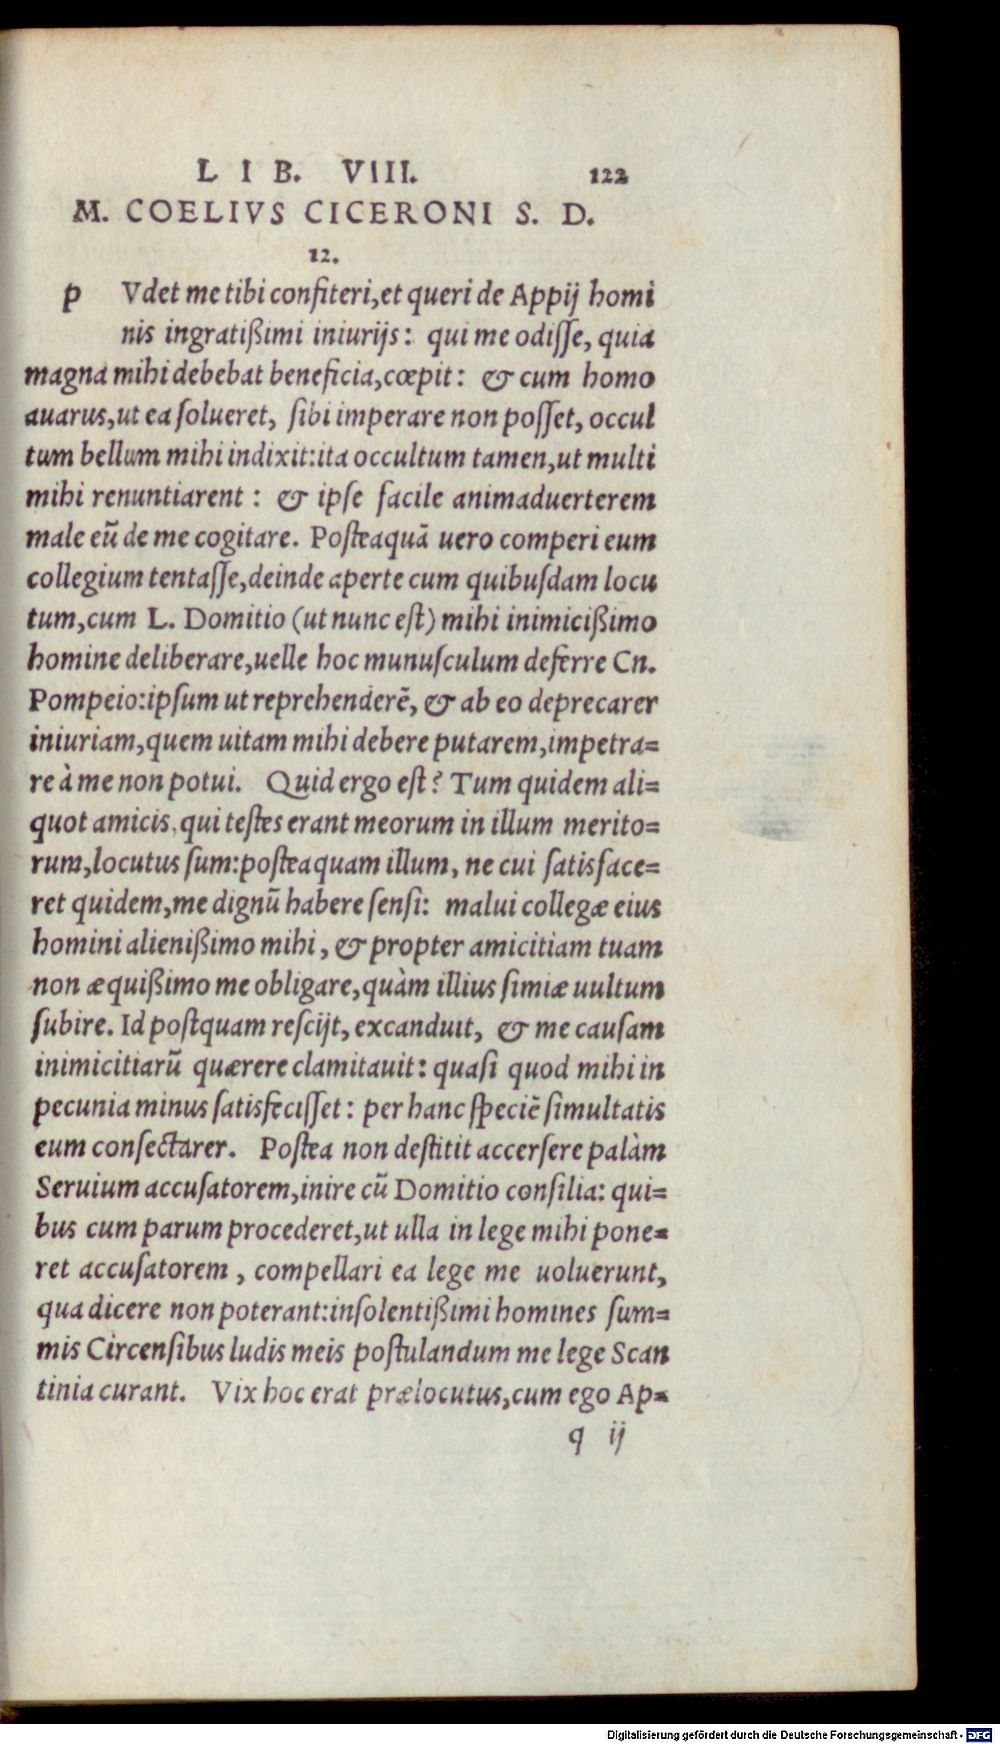 L I B. VIII. 122
M. COELIVS CICERONI S. D.
12.
p Vdet me tibi confiteri,et queri de Appij homi
nis ingratißimi iniurijs: qui me odiſſe, quia
magna mihi debebat beneficia,cœpit: & cum homo
auarus,ut ea ſolueret, ſibi imperare non poſſet, occul
tum bellum mihi indixit:ita occultum tamen,ut multi
mihi renuntiarent : & ipſe facile animaduerterem
male eũ de me cogitare. Poſteaquã uero comperi eum
collegium tentaſſe,deinde aperte cum quibuſdam locu
tum,cum L. Domitio (ut nunc eſt) mihi inimicißimo
homine deliberare,uelle hoc munuſculum deferre Cn.
Pompeio:ipſum ut reprehenderẽ, & ab eo deprecarer
iniuriam,quem uitam mihi debere putarem,impetra=
re à me non potui. Quid ergo eſt? Tum quidem ali=
quot amicis, qui teſtes erant meorum in illum merito=
rum,locutus ſum:poſteaquam illum, ne cui ſatisface=
ret quidem,me dignũ habere ſenſi: malui collegæ eius
homini alienißimo mihi, & propter amicitiam tuam
non æquißimo me obligare,quàm illius ſimiæ uultum
ſubire. Id poſtquam reſcijt, excanduit, & me cauſam
inimicitiarũ quærere clamitauit: quaſi quod mihi in
pecunia minus ſatisfeciſſet: per hanc ſpeciẽ ſimultatis
eum conſectarer. Poſtea non deſtitit accerſere palàm
Seruium accuſatorem,inire cũ Domitio conſilia: qui=
bus cum parum procederet,ut ulla in lege mihi pone=
ret accuſatorem, compellari ea lege me uoluerunt,
qua dicere non poterant:inſolentißimi homines ſum=
mis Circenſibus ludis meis poſtulandum me lege Scan
tinia curant. Vix hoc erat prælocutus,cum ego Ap=
q ij
Digitalisierung gefördert durch die Deutsche Forschungsgemeinschaft - DFG